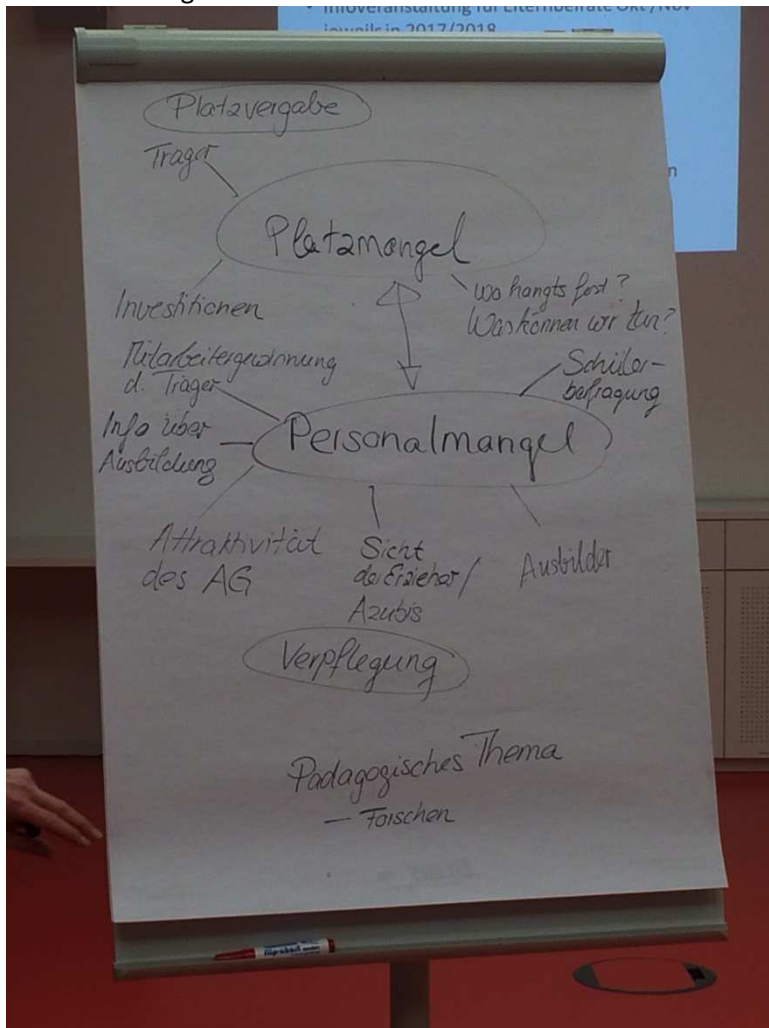 Infoveranstaltung für Elternbeiräte Okt /Nov
jeweils in 2017/2018
n
Platzvergabe
Träger
Platzmangel
Investitionen
wo hangts fest?
Was können wir tun?
Mitarbeitergewinnung
d. Träger
Schüler-
befragung
Info über
Ausbildung
Personalmangel
Attraktivität
des AG
Sicht
der Erzieher/
Azubis
Ausbilder
Verpflegung
Pädagogisches Thema
— Forschen
flip-chart